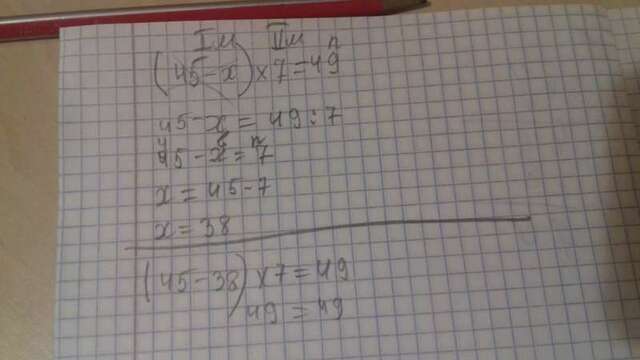 I м II м п
(45 - x) × 7 = 49
45 - x = 49 : 7
45 - x = 7
x = 45 - 7
x = 38
(45 - 38) × 7 = 49
49 = 49